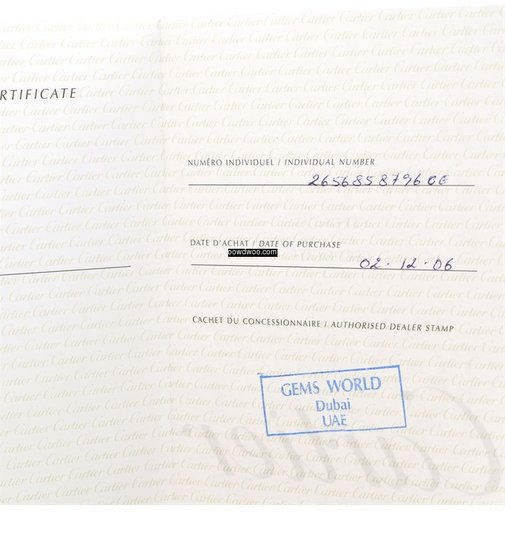 RTIFICATE
NUMÉRO INDIVIDUEL / INDIVIDUAL NUMBER
2656858796 CE
DATE D'ACHAT / DATE OF PURCHASE
powdwoo.com
02 · 12 · 06
CACHET DU CONCESSIONNAIRE / AUTHORISED DEALER STAMP
GEMS WORLD
Dubai
UAE
Cartier